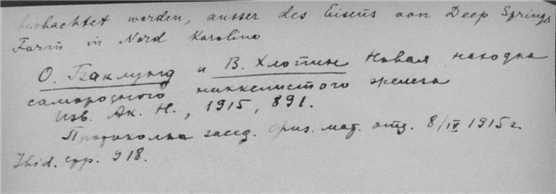 beobachtet worden, ausser des Eisens von Deep Springs
Farm in Nord Karolina
О. Баклунд и В. Хлопин Новая находка
самородного никкелистого железа
Изв. Ак. Н., 1915, 891.
Протоколы засед. физ. мат. отд. 8/IV 1915 г.
Ibid. стр. 918.